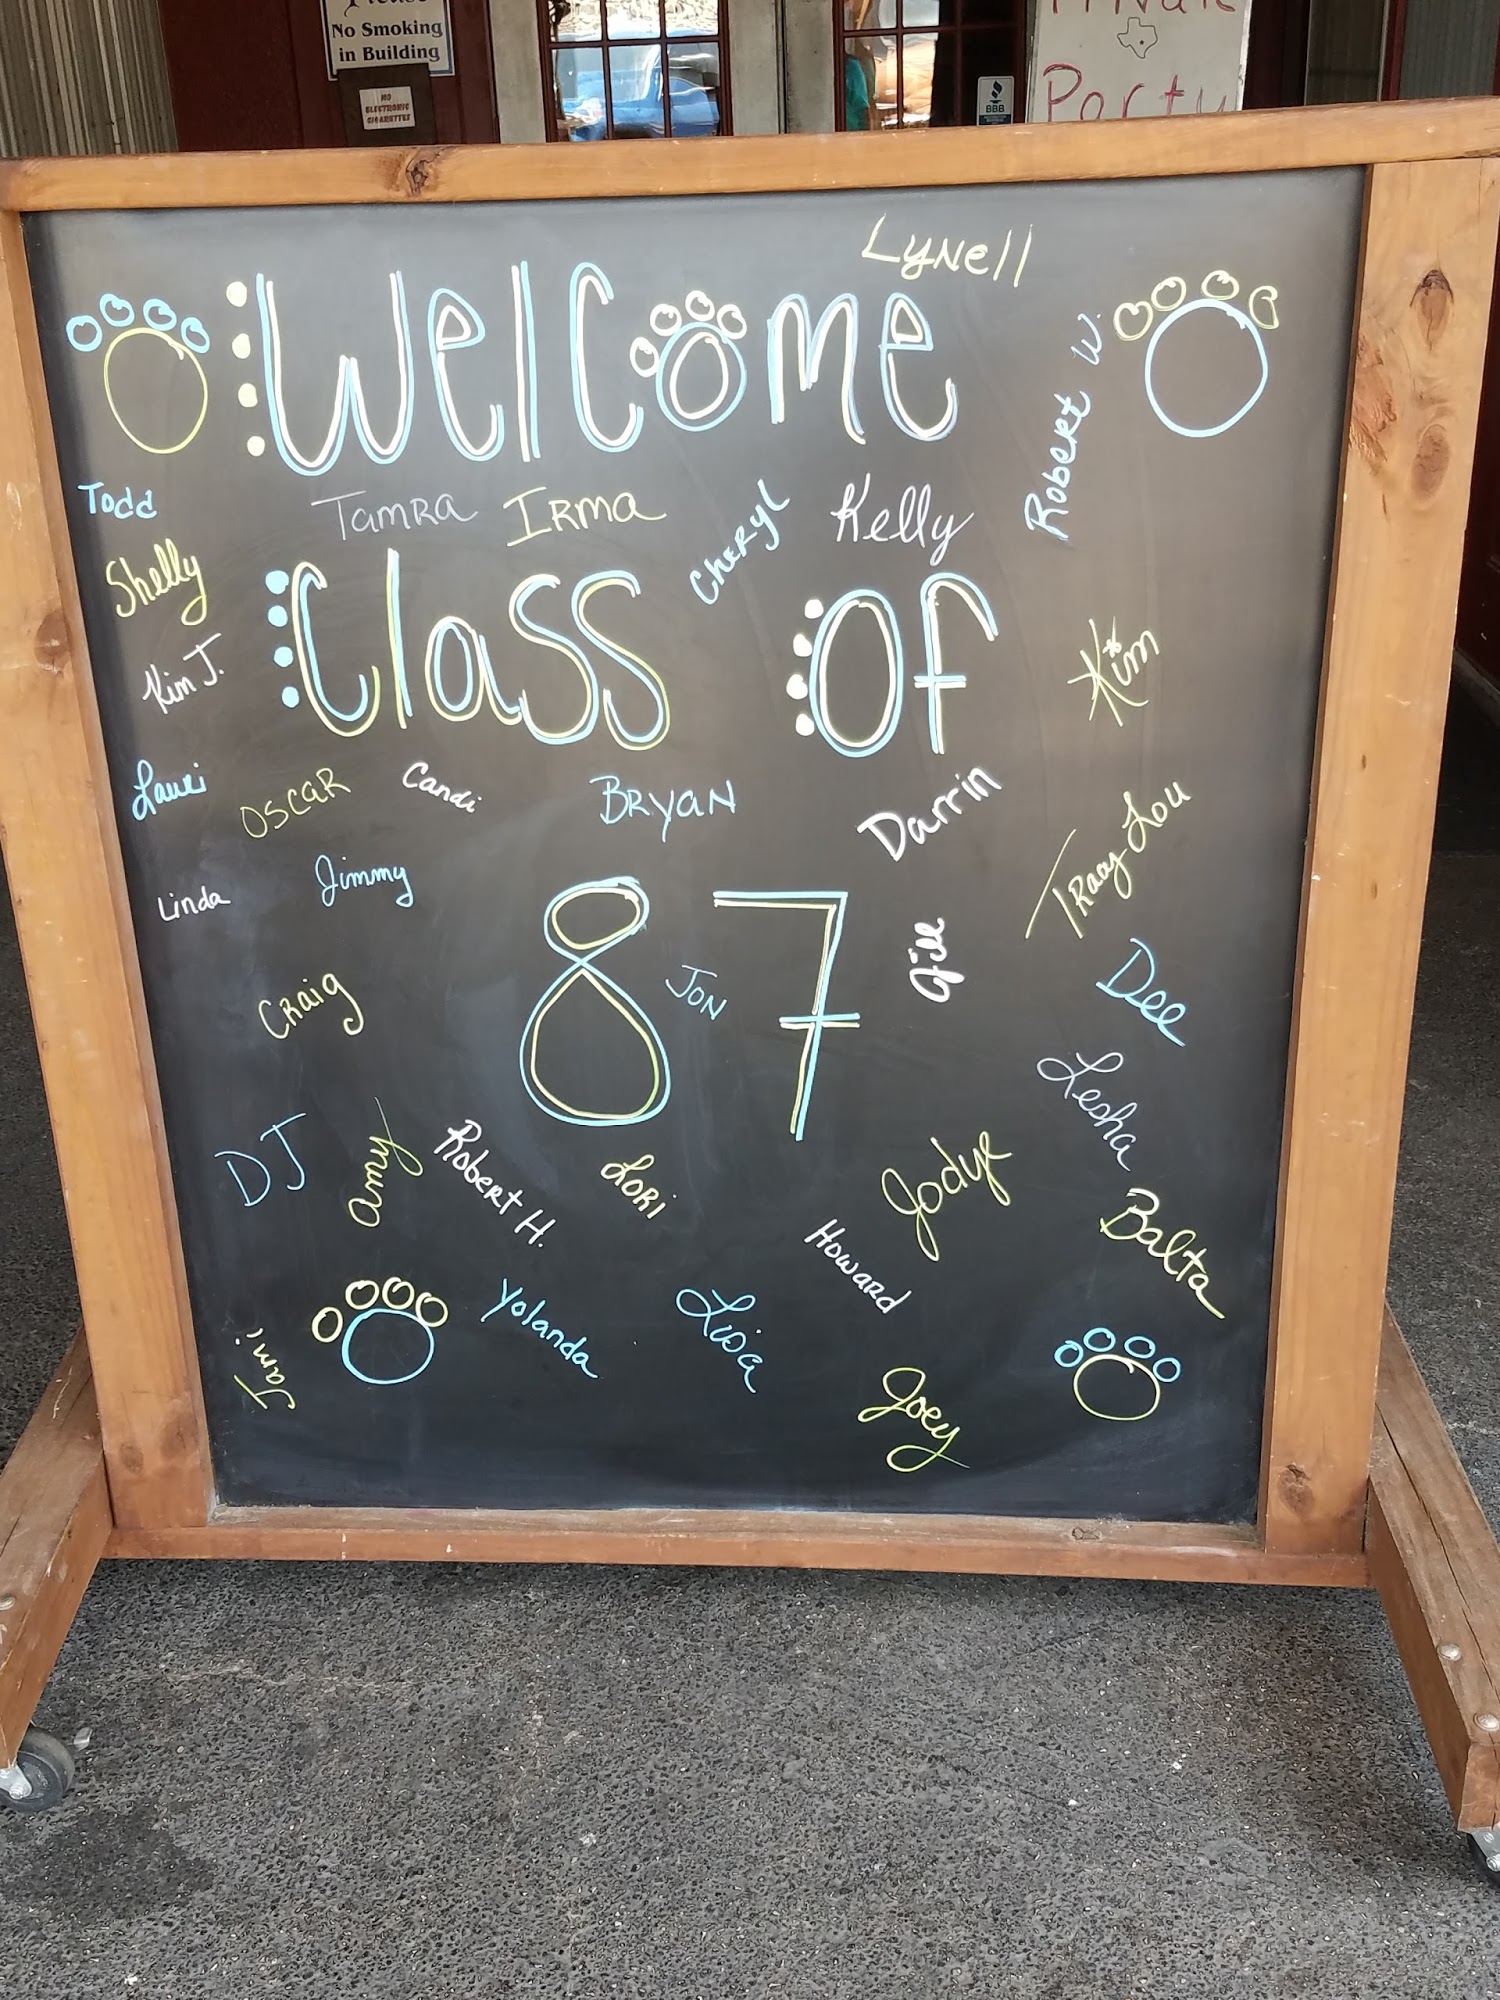 Please
No Smoking
in Building
NO
ELECTRONIC
CIGARETTES
BBB
Private
Party
Lynell
Welcome
Robert W.
Todd
Tamra
Irma
Cheryl
Kelly
Shelly
Class of
Kim J.
Kim
Lauri
Oscar
Candi
Bryan
Darrin
Tracy Lou
Linda
Jimmy
87
Jill
Jon
Dee
Craig
Lesha
DJ
Amy
Robert H.
Lori
Jodye
Balta
Howard
Yolanda
Lisa
Jami
Joey